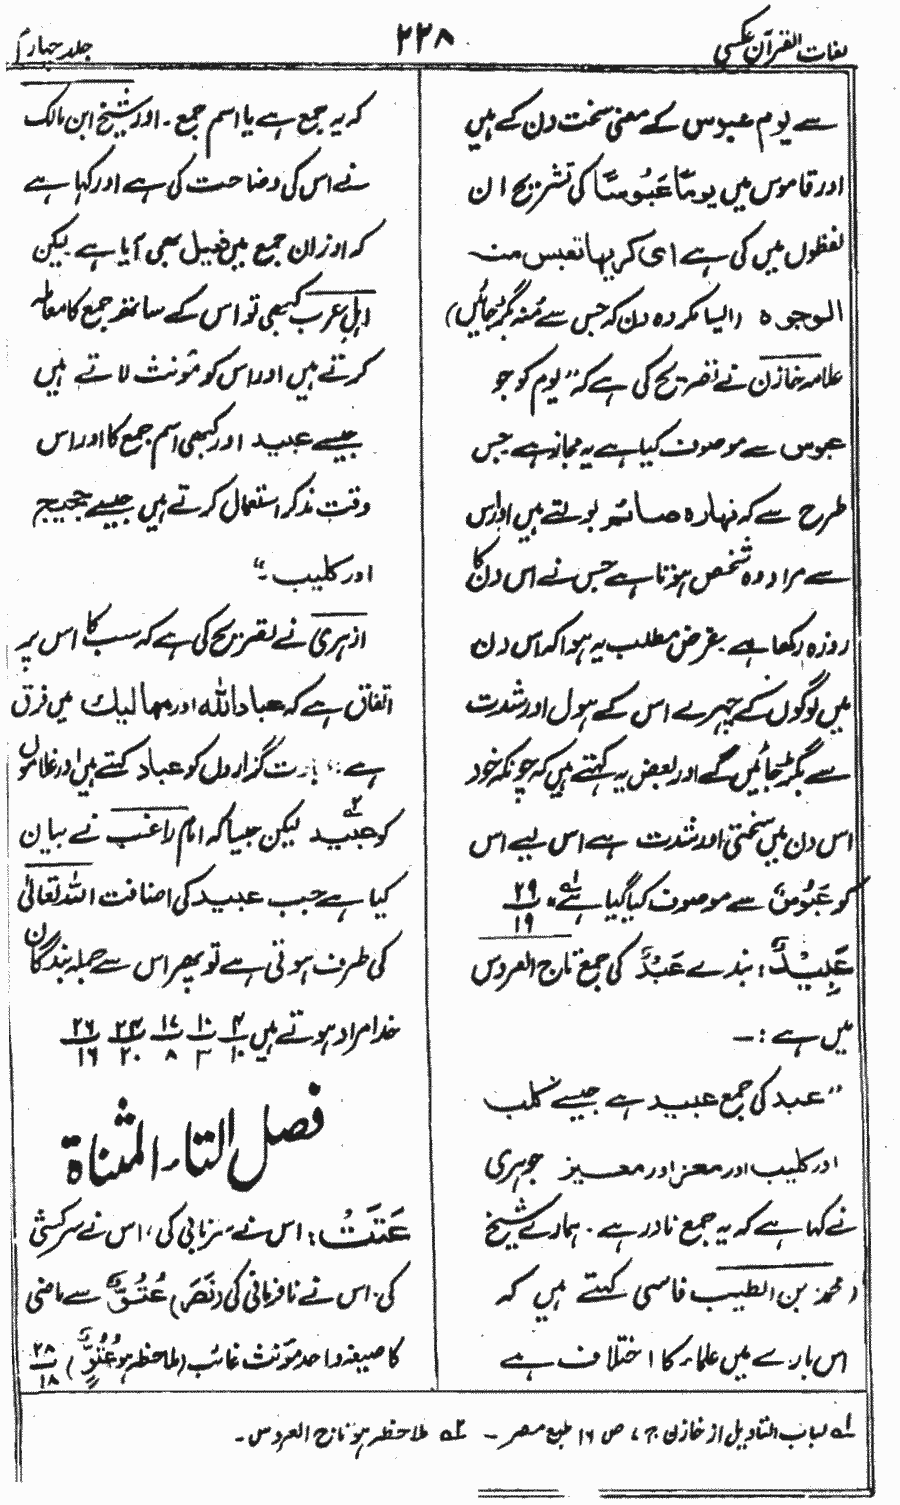 لغات القرآن عکسی
۲۲۸
جلد چہارم
سے یوم عبوس کے معنی سخت دن کے ہیں
اور قاموس میں یومًا عَبُوسًا کی تشریح ان
لفظوں میں کی ہے ای کریہا تعبس منہ
الوجوہ (ایسا مکروہ دن کہ جس سے مُنہ بگڑ جائیں)
علامہ خازن نے تصریح کی ہے کہ "یوم کو جو
عبوس سے موصوف کیا ہے یہ مجاز ہے جس
طرح سے کہ نہارہ صائم بولتے ہیں اور اس
سے مراد وہ شخص ہوتا ہے جس نے اس دن کا
روزہ رکھا ہے بغرض مطلب یہ ہوا کہ اس دن
میں لوگوں کے چہرے اس کے ہول اور شدت
سے بگڑ جائیں گے اور بعض یہ کہتے ہیں کہ چونکہ خود
اس دن میں سختی اور شدت ہے اس لیے اس
کو عَبُوس سے موصوف کیا گیا ہے" ۲۹ ۱۹
عَبِیْدٌ: بندے عَبْدٌ کی جمع تاج العروس
میں ہے :۔
"عبد کی جمع عبید ہے جیسے کلب
اور کلیب اور معز اور معیز جوہری
نے کہا ہے کہ یہ جمع نادر ہے۔ ہمارے شیخ
(محمد بن الطیب فاسی کہتے ہیں کہ
اس بارے میں علماء کا اختلاف ہے
کہ یہ جمع ہے یا اسم جمع۔ اور شیخ ابن مالک
نے اس کی وضاحت کی ہے اور کہا ہے
کہ اوزان جمع میں فعیل بھی آیا ہے لیکن
اہل عرب کبھی تو اس کے ساتھ جمع کا معاملہ
کرتے ہیں اور اس کو مؤنث لاتے ہیں
جیسے عبید اور کبھی اسم جمع کا اور اس
وقت مذکر استعمال کرتے ہیں جیسے حجیج
اور کلیب۔"
ازہری نے تصریح کی ہے کہ سب کا اس پر
اتفاق ہے کہ عباد اللہ اور ممالیک میں فرق
ہے، گزاروں کو عباد کہتے ہیں اور غلاموں
کو عبید لیکن جیسا کہ امام راغب نے بیان
کیا ہے جب عبید کی اضافت اللہ تعالیٰ
کی طرف ہوتی ہے تو پھر اس سے جملہ بندگان
خدا مراد ہوتے ہیں ۴ ۱۰ ۱۰ ۳ ۱۷ ۸ ۲۴ ۲۰ ۲۶ ۱۶
فصل التاء المثناۃ
عَتَتْ: اس نے سرتابی کی، اس نے سرکشی
کی۔ اس نے نافرمانی کی (نَصَرَ) عُتُوٌّ سے ماضی
کا صیغہ واحد مؤنث غائب (ملاحظہ ہو عُتُوٌّ) ۲۸ ۱۸
لہ لباب التاویل از خازن ج ۷، ص ۱۶ طبع مصر۔ لہ ملاحظہ ہو تاج العروس۔